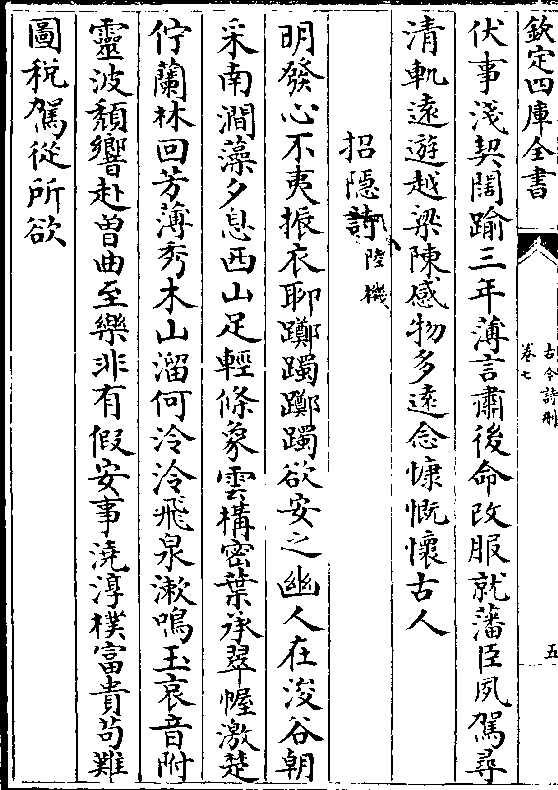 欽定四庫全書
古今詩刪
卷七
五
伏事淺契闊踰三年薄言肅後命改服就藩臣夙駕尋
清軌遠遊越梁陳感物多遠念慷慨懷古人
招隱詩 陸機
明發心不夷振衣聊躑躅躑躅欲安之幽人在浚谷朝
采南澗藻夕息西山足輕條象雲構密葉承翠幄激楚
佇蘭林回芳薄秀木山溜何泠泠飛泉漱鳴玉哀音附
靈波頹響赴曽曲至樂非有假安事澆淳樸富貴苟難
圖稅駕從所欲